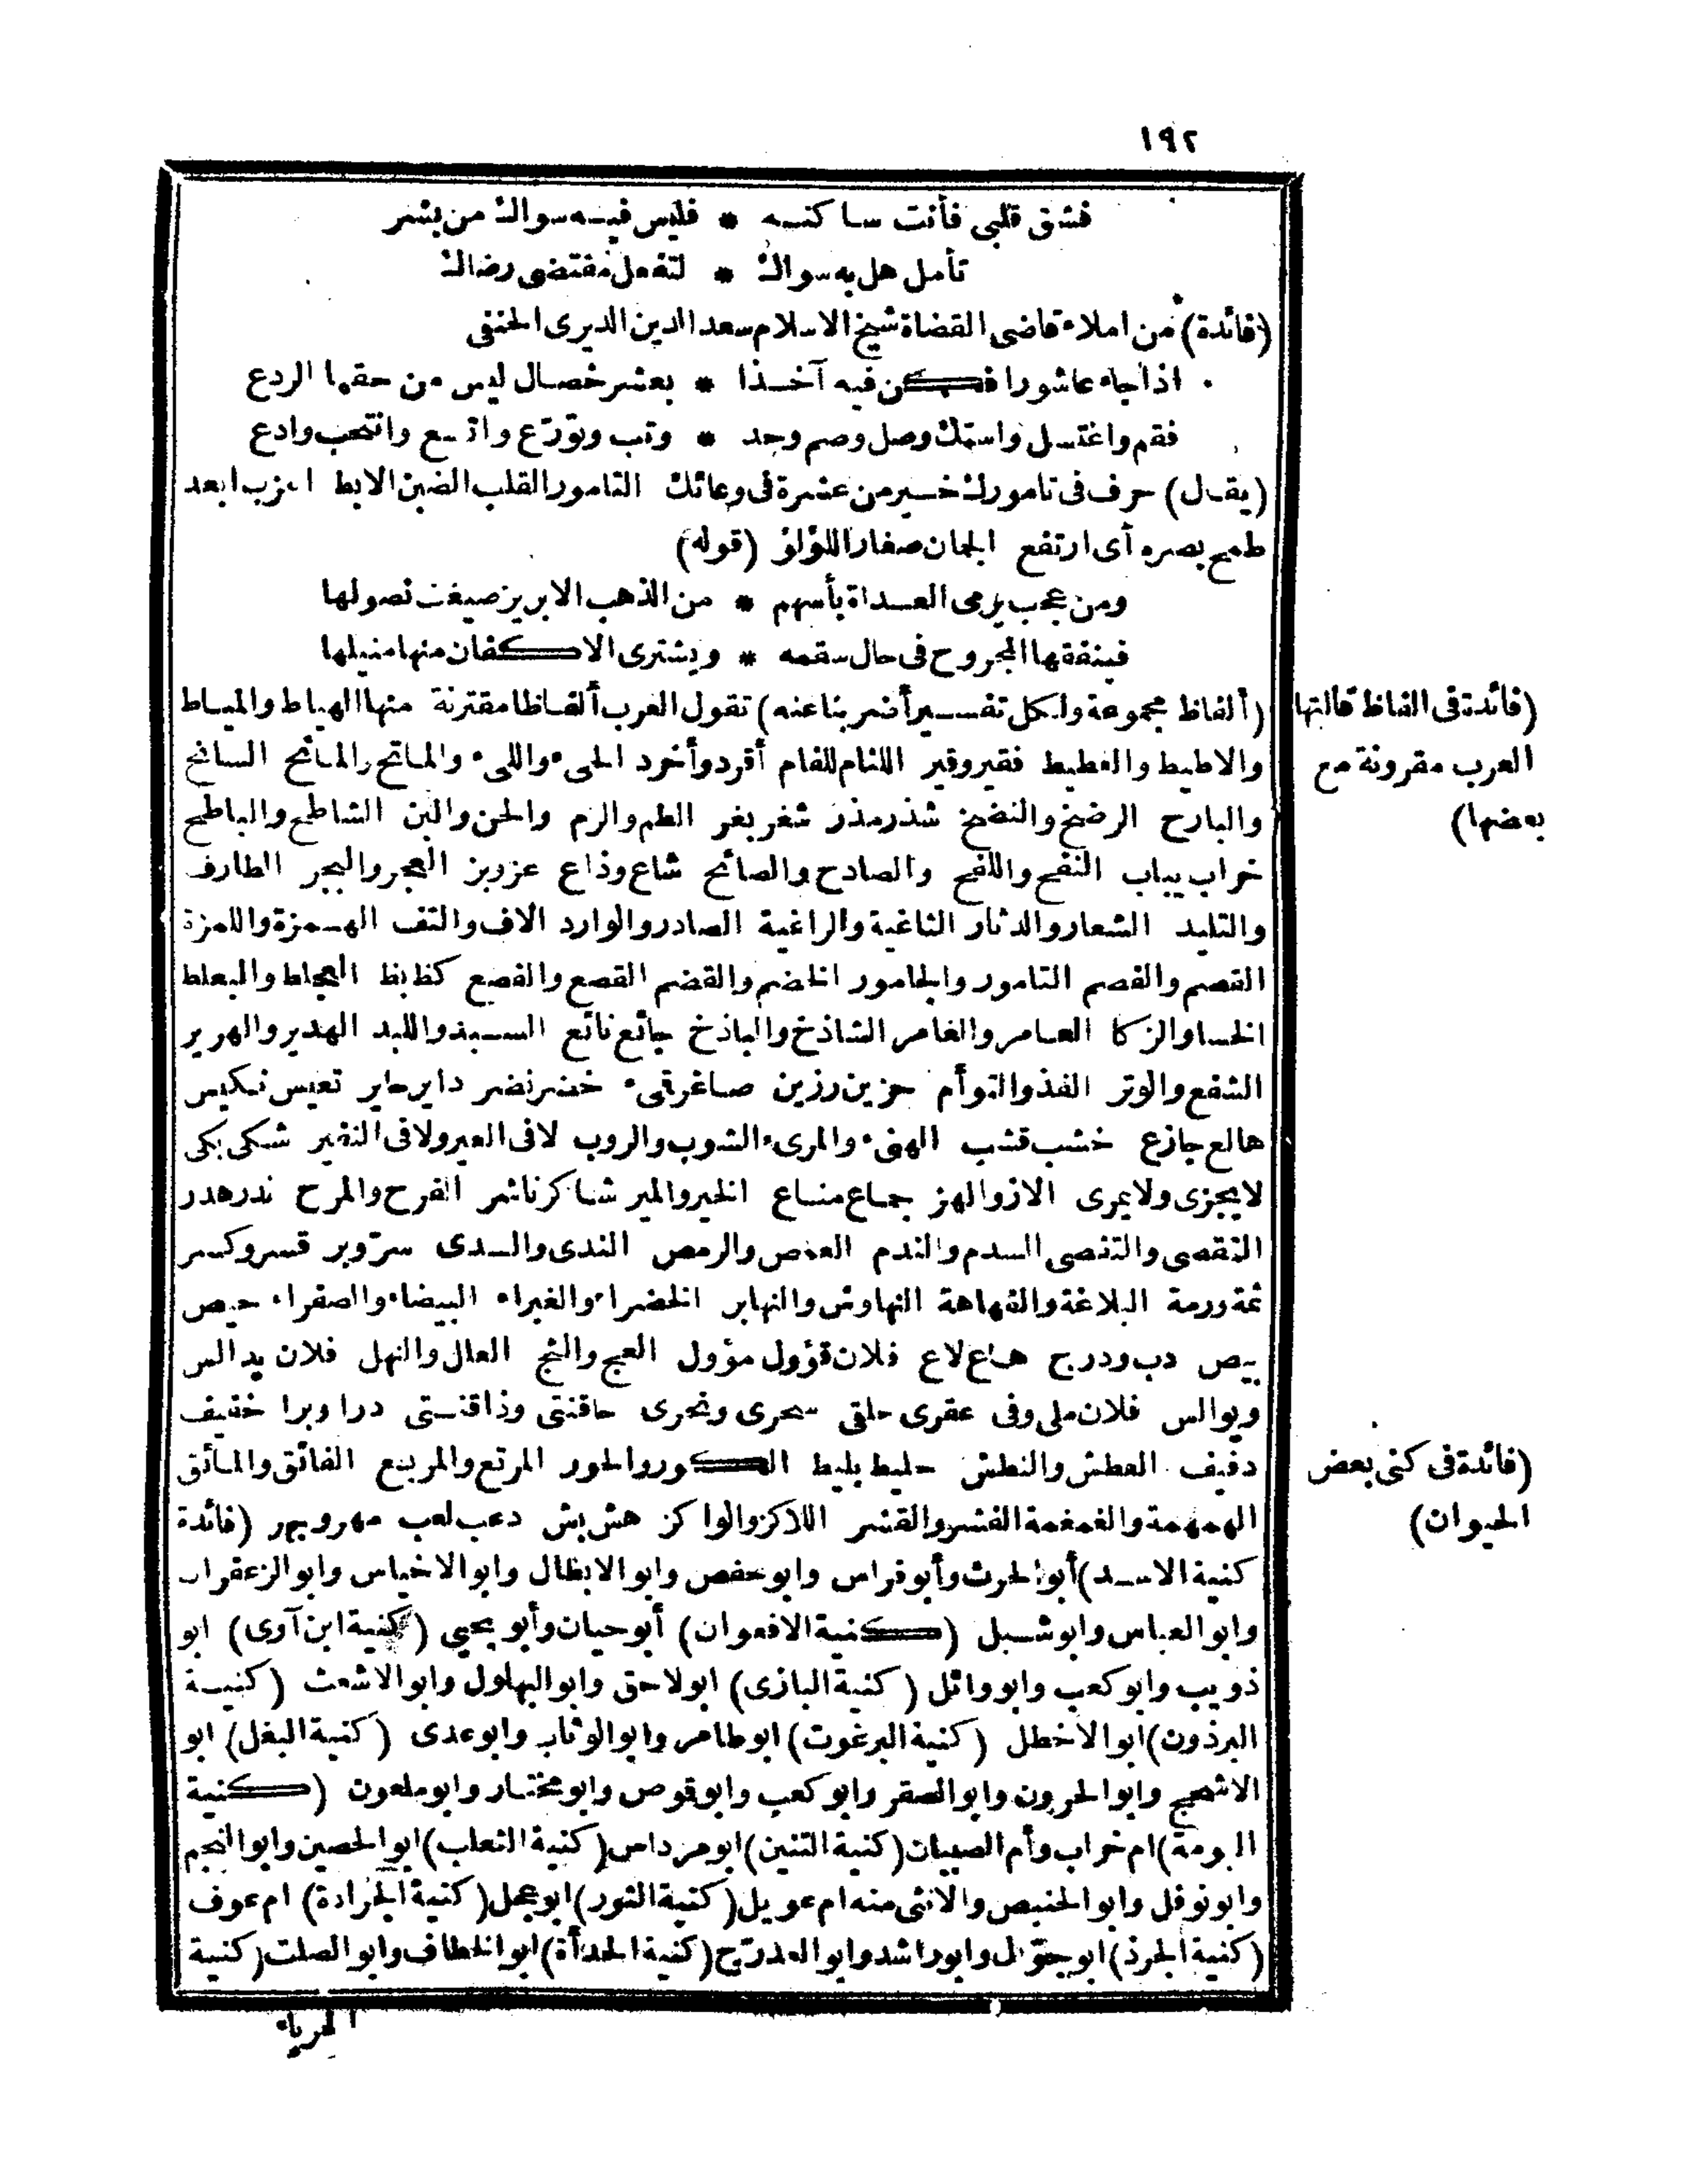 ١٩٢
فشق قلبي فأنت ساكنه * فليس فيه سواك من بشر
تأمل هل به سواك * لتفعل مقتضى رضاك
(فائدة) من املاء قاضى القضاة شيخ الاسلام سعد الدين الديرى الحنفى
اذا جاء عاشورا فكن فيه آخذا * بعشر خصال ليس من حقها الردع
فقم واغتسل واستك وصل وصم وجد * وتب وتورّع واتسع وانتحب وادع
(يقال) حرف فى تامورك خير من عشرة فى وعائك التامور القلب الضبن الابط اعزب ابعد
طمح بصره أى ارتفع الجمان صغار اللؤلؤ (قوله)
ومن عجب يرمى العداة بأسهم * من الذهب الابريز صيغت نصولها
فينفقها المجروح فى حال سقمه * ويشترى الاكفان منها منيلها
(ألفاظ مجموعة ولكل تفسير أضربنا عنه) تقول العرب ألفاظا مقترنة منها الهياط والمياط
(فائدة فى الفاظ قالتها
والاطيط والغطيط فقير وقير اللثام للفام أقرد وأخرد الحىء واللىء والماتح والمائح السانح
العرب مقرونة مع
والبارح الرضخ والنضخ شذر مذر شغر بغر الطم والرم والحن والبن الشاطح والباطح
بعضها)
خراب يباب النفح واللفح والصادح والصائح شاع وذاع عزيز بز العجر والبجر الطارف
والتليد الشعار والدثار الثاغية والراغية الصادر والوارد الاف والتف الهمزة واللمزة
القصم والفصم التامور والجامور الخضم والقضم القصع والفصع كظ بظ العجلط والبعلط
الخسا والزكا العامر والغامر الشاذخ والباذخ جائع نائع السبد واللبد الهدير والهرير
الشفع والوتر الفذ والتوأم حزين رزين صاغر قىء خضر نضر داير حاير تعيس نكيس
هالع جازع خشب قشب الهنىء والمرىء الشوب والروب لا فى العير ولا فى النفير شكى بكى
لا يجزى ولا يمرى الاز والهز جماع مناع الخير والمير شاكر ناشر الفرح والمرح ندر هدر
التقصى والتفصى السدم والندم الغمص والرمص الندى والسدى سرّ وبر قسر وكسر
ثمة ورمة البلاغة والفهاهة النهاوش والنهابر الخضراء والغبراء البيضاء والصفراء حيص
بيص دب ودرج هاع لاع فلان قؤول مؤول العج والثج العال والنهل فلان يدالس
ويوالس فلان ملى وفى عقرى حلقى سحرى ونحرى حاقنتى وذاقنتى درا وبرا خفيف
دفيف العطش والنطش حليط بليط الكور والحور المرتع والمربع الفائق والمائق
(فائدة فى كنى بعض
الهمهمة والغمغمة الفشر والقشر اللاكز والواكز هش بش دعب لعب مهر وبهر (فائدة
الحيوان)
كنية الاسد) أبو الحرث وأبو فراس وابو حفص وابو الابطال وابو الاخياس وابو الزعفران
وابو العباس وابو شبل (كنية الافعوان) أبو حيان وأبو يحيى (كنية ابن آوى) ابو
ذويب وابو كعب وابو وائل (كنية البازى) ابو لاحق وابو البهلول وابو الاشعث (كنية
البرذون) ابو الاخطل (كنية البرغوت) ابو طامر وابو الوثاب وابو عدى (كنية البغل) ابو
الاشحج وابو الحرون وابو الصقر وابو كعب وابو قموص وابو مختار وابو ملعون (كنية
البومة) ام خراب وأم الصبيان (كنية التنين) ابو مرداس (كنية الثعلب) ابو الحصين وابو النجم
وابو نوفل وابو الحنبص والانثى منه ام عويل (كنية الثور) ابو عجل (كنية الجرادة) ام عوف
(كنية الجرذ) ابو جوّال وابو راشد وابو العدرّج (كنية الحدأة) ابو الخطاف وابو الصلت (كنية
الحرباء